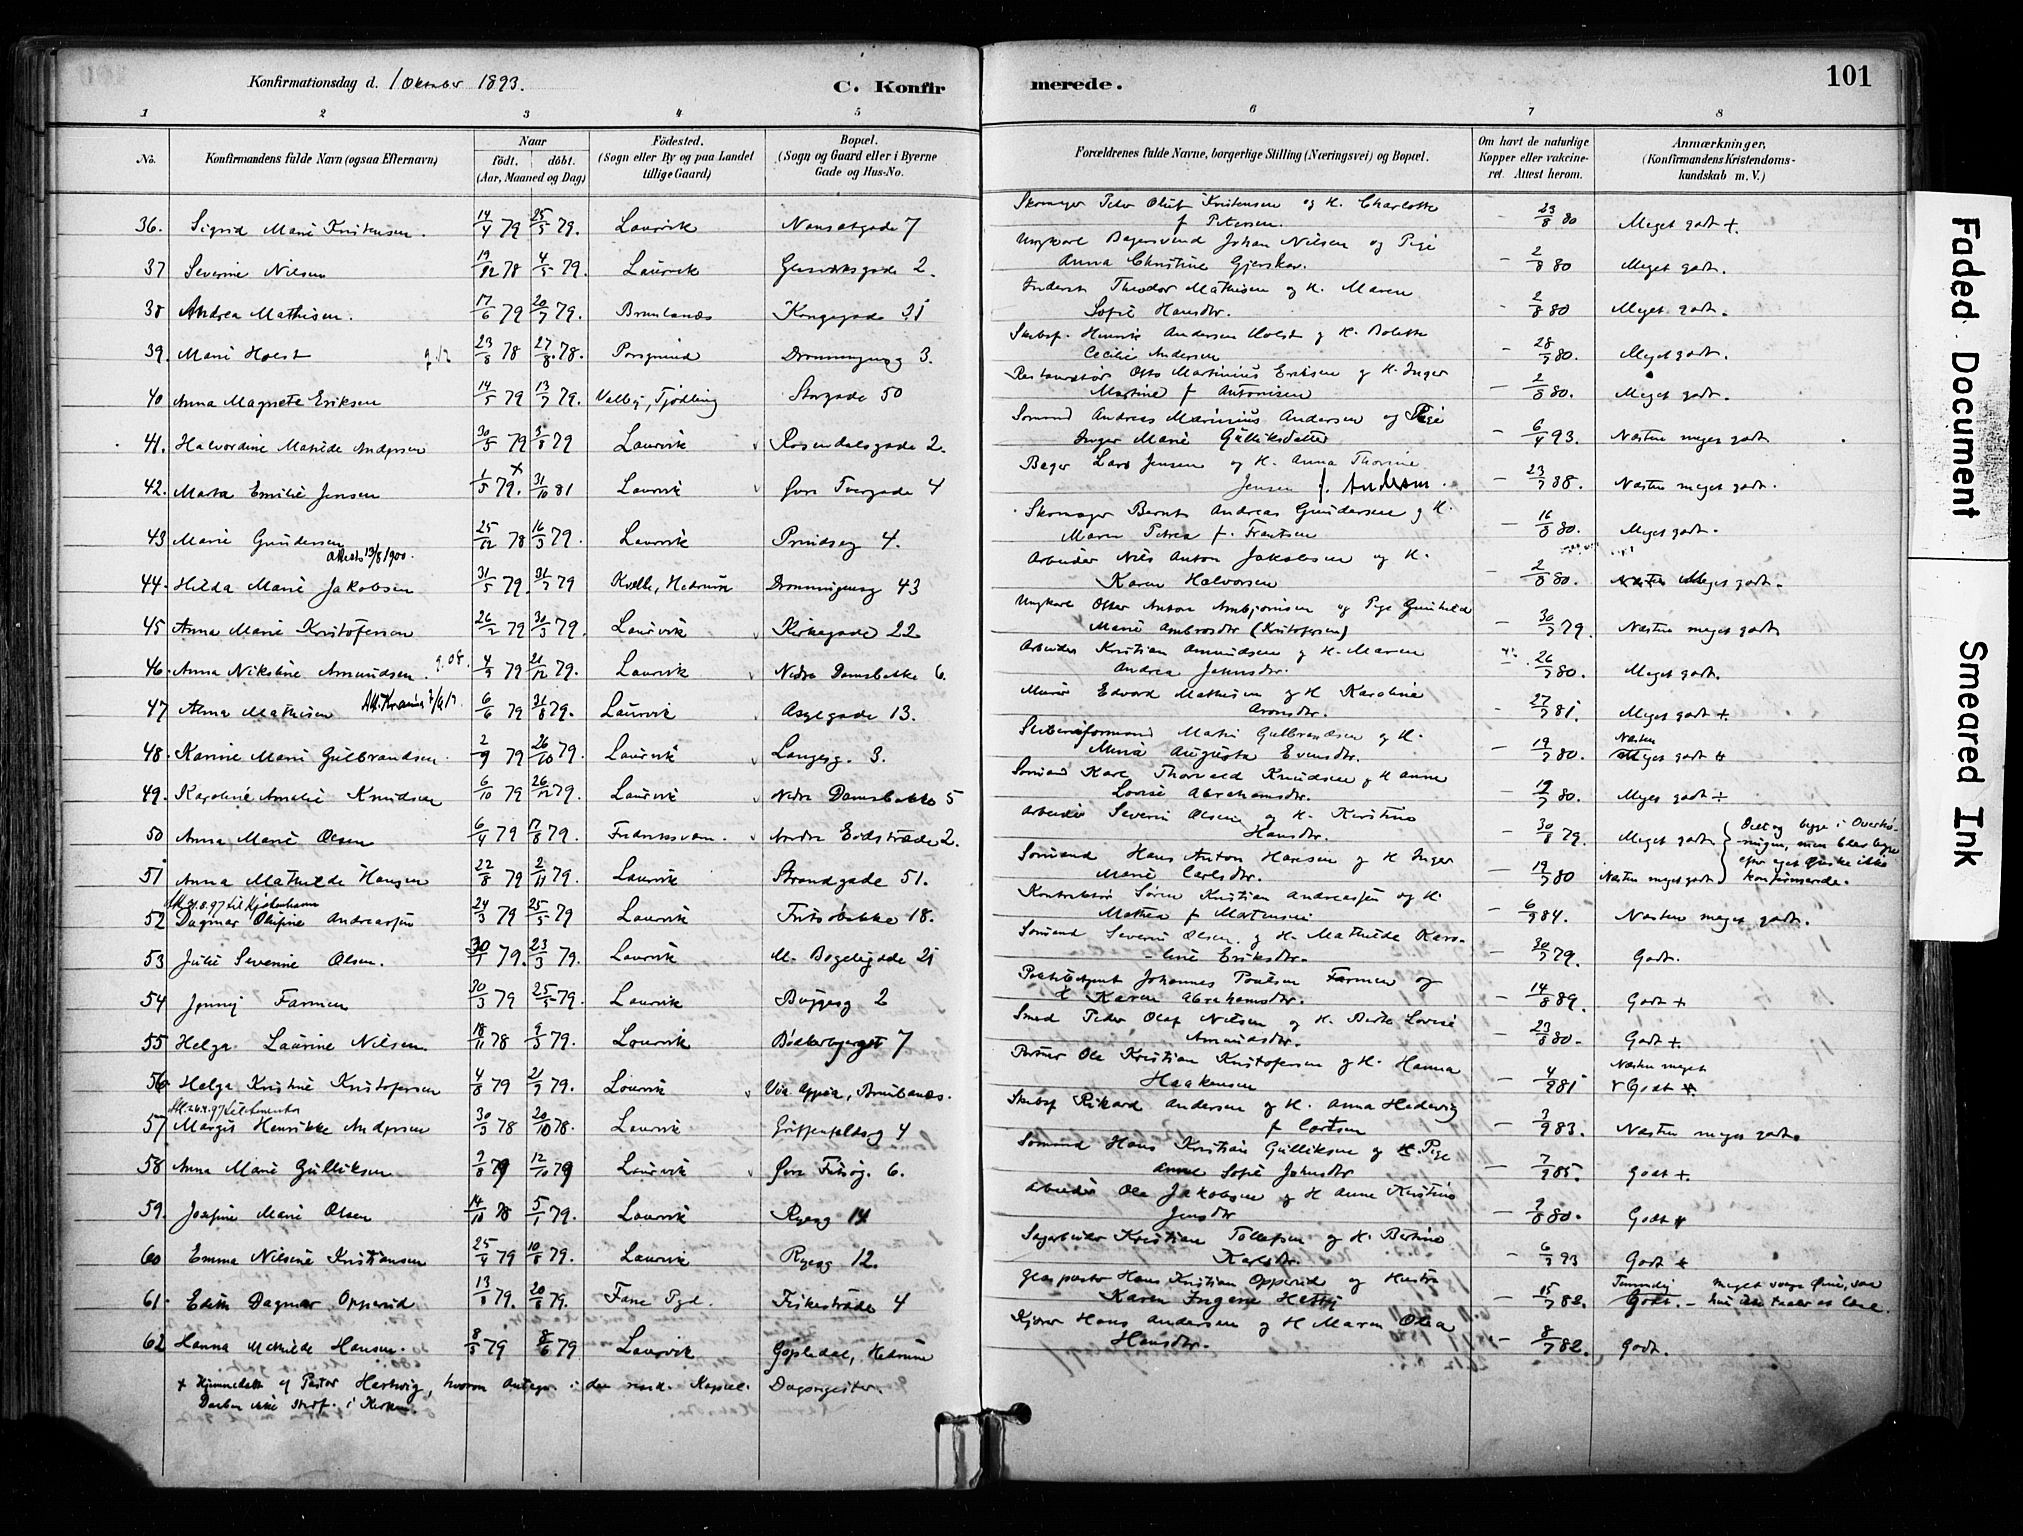 101
Konfirmationsdag d. 1 Oktober 1893.
C. Konfirmerede.
1 2 3 4 5 6 7 8
No.
Konfirmandens fulde Navn (ogsaa Efternavn)
Naar
födt. döbt.
(Aar, Maaned og Dag)
Födested.
(Sogn eller By og paa Landet
tillige Gaard)
Bopæl.
(Sogn og Gaard eller i Byerne
Gade og Hus-No.
Forældrenes fulde Navne, borgerlige Stilling (Næringsvei) og Bopæl.
Om havt de naturlige
Kopper eller vakcine-
ret. Attest herom.
Anmærkninger,
(Konfirmandens Kristendoms-
kundskab m. V.)
36. Sigrid Marie Kristensen. 14/4 79 25/5 79. Laurvik Nansetgade 7 Skomager Peder Oluf Kristensen og H. Charlotte f Petersen. – 23/8 80 Meget godt +.
37 Severine Nilsen 19/12 78 4/5 79. Laurvik 2. Ungkarl Bagersvend Johan Nilsen og Pige Anna Christine – 2/8 80 Meget godt.
38 Andrea Mathisen. 17/6 79 20/7 79. Brunlanes Kongegade 21 Theodor Mathisen og H. Maren Sofie Hansdtr. – 2/8 80 Meget godt.
39. Marie Holst 23/8 78 27/8 78. Porsgrund Dronningensg 3. Skibsf. Henrik Andersen Holst og H. Bolette Cecilie Andersen – 28/7 80. Meget godt.
40 Anna Magrete Eriksen 14/5 79 13/7 79. Valby, Tjødling Storgade 50 Restauratør Otto Martinius Eriksen og H. Inger Martine f Antonisen – 2/8 80. Meget godt.
41. Halvordine Matilde Andersen 30/5 79 3/8 79 Laurvik Rosendalsgade 2. Sømand Andreas Marinius Andersen og Pige Inger Marie Gulliksdatter – 6/4 93. Næsten meget godt
42. Marta Emilie Jensen 1/5 79. + 31/10 81 Laurvik Øvre Tvergade 4 Bager Lars Jensen og H. Anna Thorine Jensen f. Andersen. – 23/7 88. Næsten meget godt.
43 Marie Gundersen 25/12 78 16/3 79. Laurvik Prindseg 4. Skomager Bernt Andreas Gundersen og H. Maren Petrea f. Frantsen – 16/8 80. Meget godt.
attest 13/8 1900.
44. Hilda Marie Jakobsen 31/5 79. 31/7 79 Kvelle, Hedrum Dronningensg 43 Arbeider Nils Anton Jakobsen og H. Karen Halvorsen – 2/8 80. Næsten Meget godt.
45 Anna Marie Kristofersen 26/2 79 30/3 79. Laurvik Kirkegade 22 Ungkarl Otter Anton Ambjørnsen og Pige Gunhild Marie Ambrosdtr (Kristofersen) – 30/7 79. Næsten meget godt
46. Anna Nikoline Amundsen. 4/9 79 21/12 79. Laurvik Nedre Damsbakke 6. Arbeider Kristian Amundsen og H. Maren Andrea Johnsdtr. 26/7 80. Meget godt.
47 Alma Mathisen 6/6 79 31/8 79. Laurvik Asylgade 13. Murer Edvard Mathisen og H Karoline Aronsdtr. – 27/7 81. Meget godt +.
48. Karine Marie Gulbrandsen. 2/9 79 26/10 79. Laurvik Langesg. 3. Mathis Gulbrandsen og H. Mina Augusta Evensdtr. – 19/7 80. Næsten Meget godt +
49. Karoline Amalie Knudsen 6/10 79 26/12 79. Laurvik Nedre Damsbakke 5 Sømand Karl Thorvald Knudsen og H Anne Lovise Abrahamsdtr. – 19/7 80. Meget godt ÷
50 Anna Marie Olsen 6/4 79 17/8 79. Fredriksværn. Nordre Eidstræde 2. Arbeider Severin Olsen og H. Kirstine Hansdtr. – 30/8 79. Meget godt
51 Anna Mathilde Hansen 22/8 79 2/11 79. Laurvik Strandgade 51. Sømand Hans Anton Hansen og H Inger Marie Carlsdtr. – 19/7 80 Næsten meget godt
Deltog begge i Overhø-
ringen, men blev begge
efter eget Ønske ikke
konfirmerede.
Att. 21.8.97 til Kjøbenhavn
52 Dagmar Olufine Andreassen 24/3 79 25/5 79 Laurvik Fritsøbakke 18. Kontrolør Søren Kristian Andreassen og H. Mathea f Martensen – 6/9 84. Næsten meget godt.
53 Julie Severine Olsen. 30/1 79. 23/3 79. Laurvik M. Bøgeligade 21 Sømand Severin Olsen og H. Mathilde Karoline Eriksdtr. – 30/7 79. Godt.
54 Jenny Farmen 30/3 79 25/5 79. Laurvik Buggesg 2 Johannes Poulsen Farmen og H. Karen Abrahamsdtr. – 14/8 89. Godt +
55 Helga Laurine Nilsen. 18/11 78 9/3 79. Laurvik Bødkerbjerget 7 Smed Peder Olaf Nilsen og H. Berte Lovise Amundsdtr. – 23/8 80. Godt +.
56. Helga Kristine Kristofersen 4/8 79 21/9 79. Laurvik Via Appia, Brunlanes. Ole Kristian Kristofersen og H. Hanna Haakensen – 4/9 81 Næsten meget Godt +.
57 Margit Henrikke Andersen 30/3 78 20/10 78. Laurvik Griffenfeldsg 4 Skibsf Rikard Andersen og H. Anna Hedevig f Carlsen – 3/9 83. Næsten meget godt.
58 Anna Marie Gulliksen 2/8 79 12/10 79 Laurvik Øvre Fritsøg. 6. Sømand Hans Kristian Gulliksen og Pige Anne Sofie Johnsdtr – 7/9 85. Godt +.
59. Josefine Marie Olsen 14/10 78 5/1 79. Laurvik Ryesg 14 Arbeider Ole Jakobsen og H Anne Kirstine Jensdtr – 2/8 80. Godt +
60 Emma Nilsine Kristiansen 25/4 79 10/8 79. Laurvik Ryesg 12. Sagarbeider Kristian Tollefsen og H. Bertine Karlsdtr. – 6/3 93 Godt +
61. Edith Dagmar Opperud 13/8 79. 20/8 79. Fane Pgd. Fiskestræde 4 Glaspuster Hans Kristian Opperud og Hustru Karen Ingene Hetty – 15/7 82. Godt. – meget svage Øine, saa hun ikke taaler at læse.
62 Hanna Mathilde Hansen. 8/5 79 8/6 79 Laurvik Gopledal, Hedrum Kjører Hans Andersen og H Maren Olea Hansdtr. – 8/7 82. Godt.
+ Hjemmedøbt af Pastor Hertwig, hvoron antegn. i den rosk. Kapel. Dagsregister.
Daaben ikke stadf. i Kirken
Faded Document
Smeared Ink